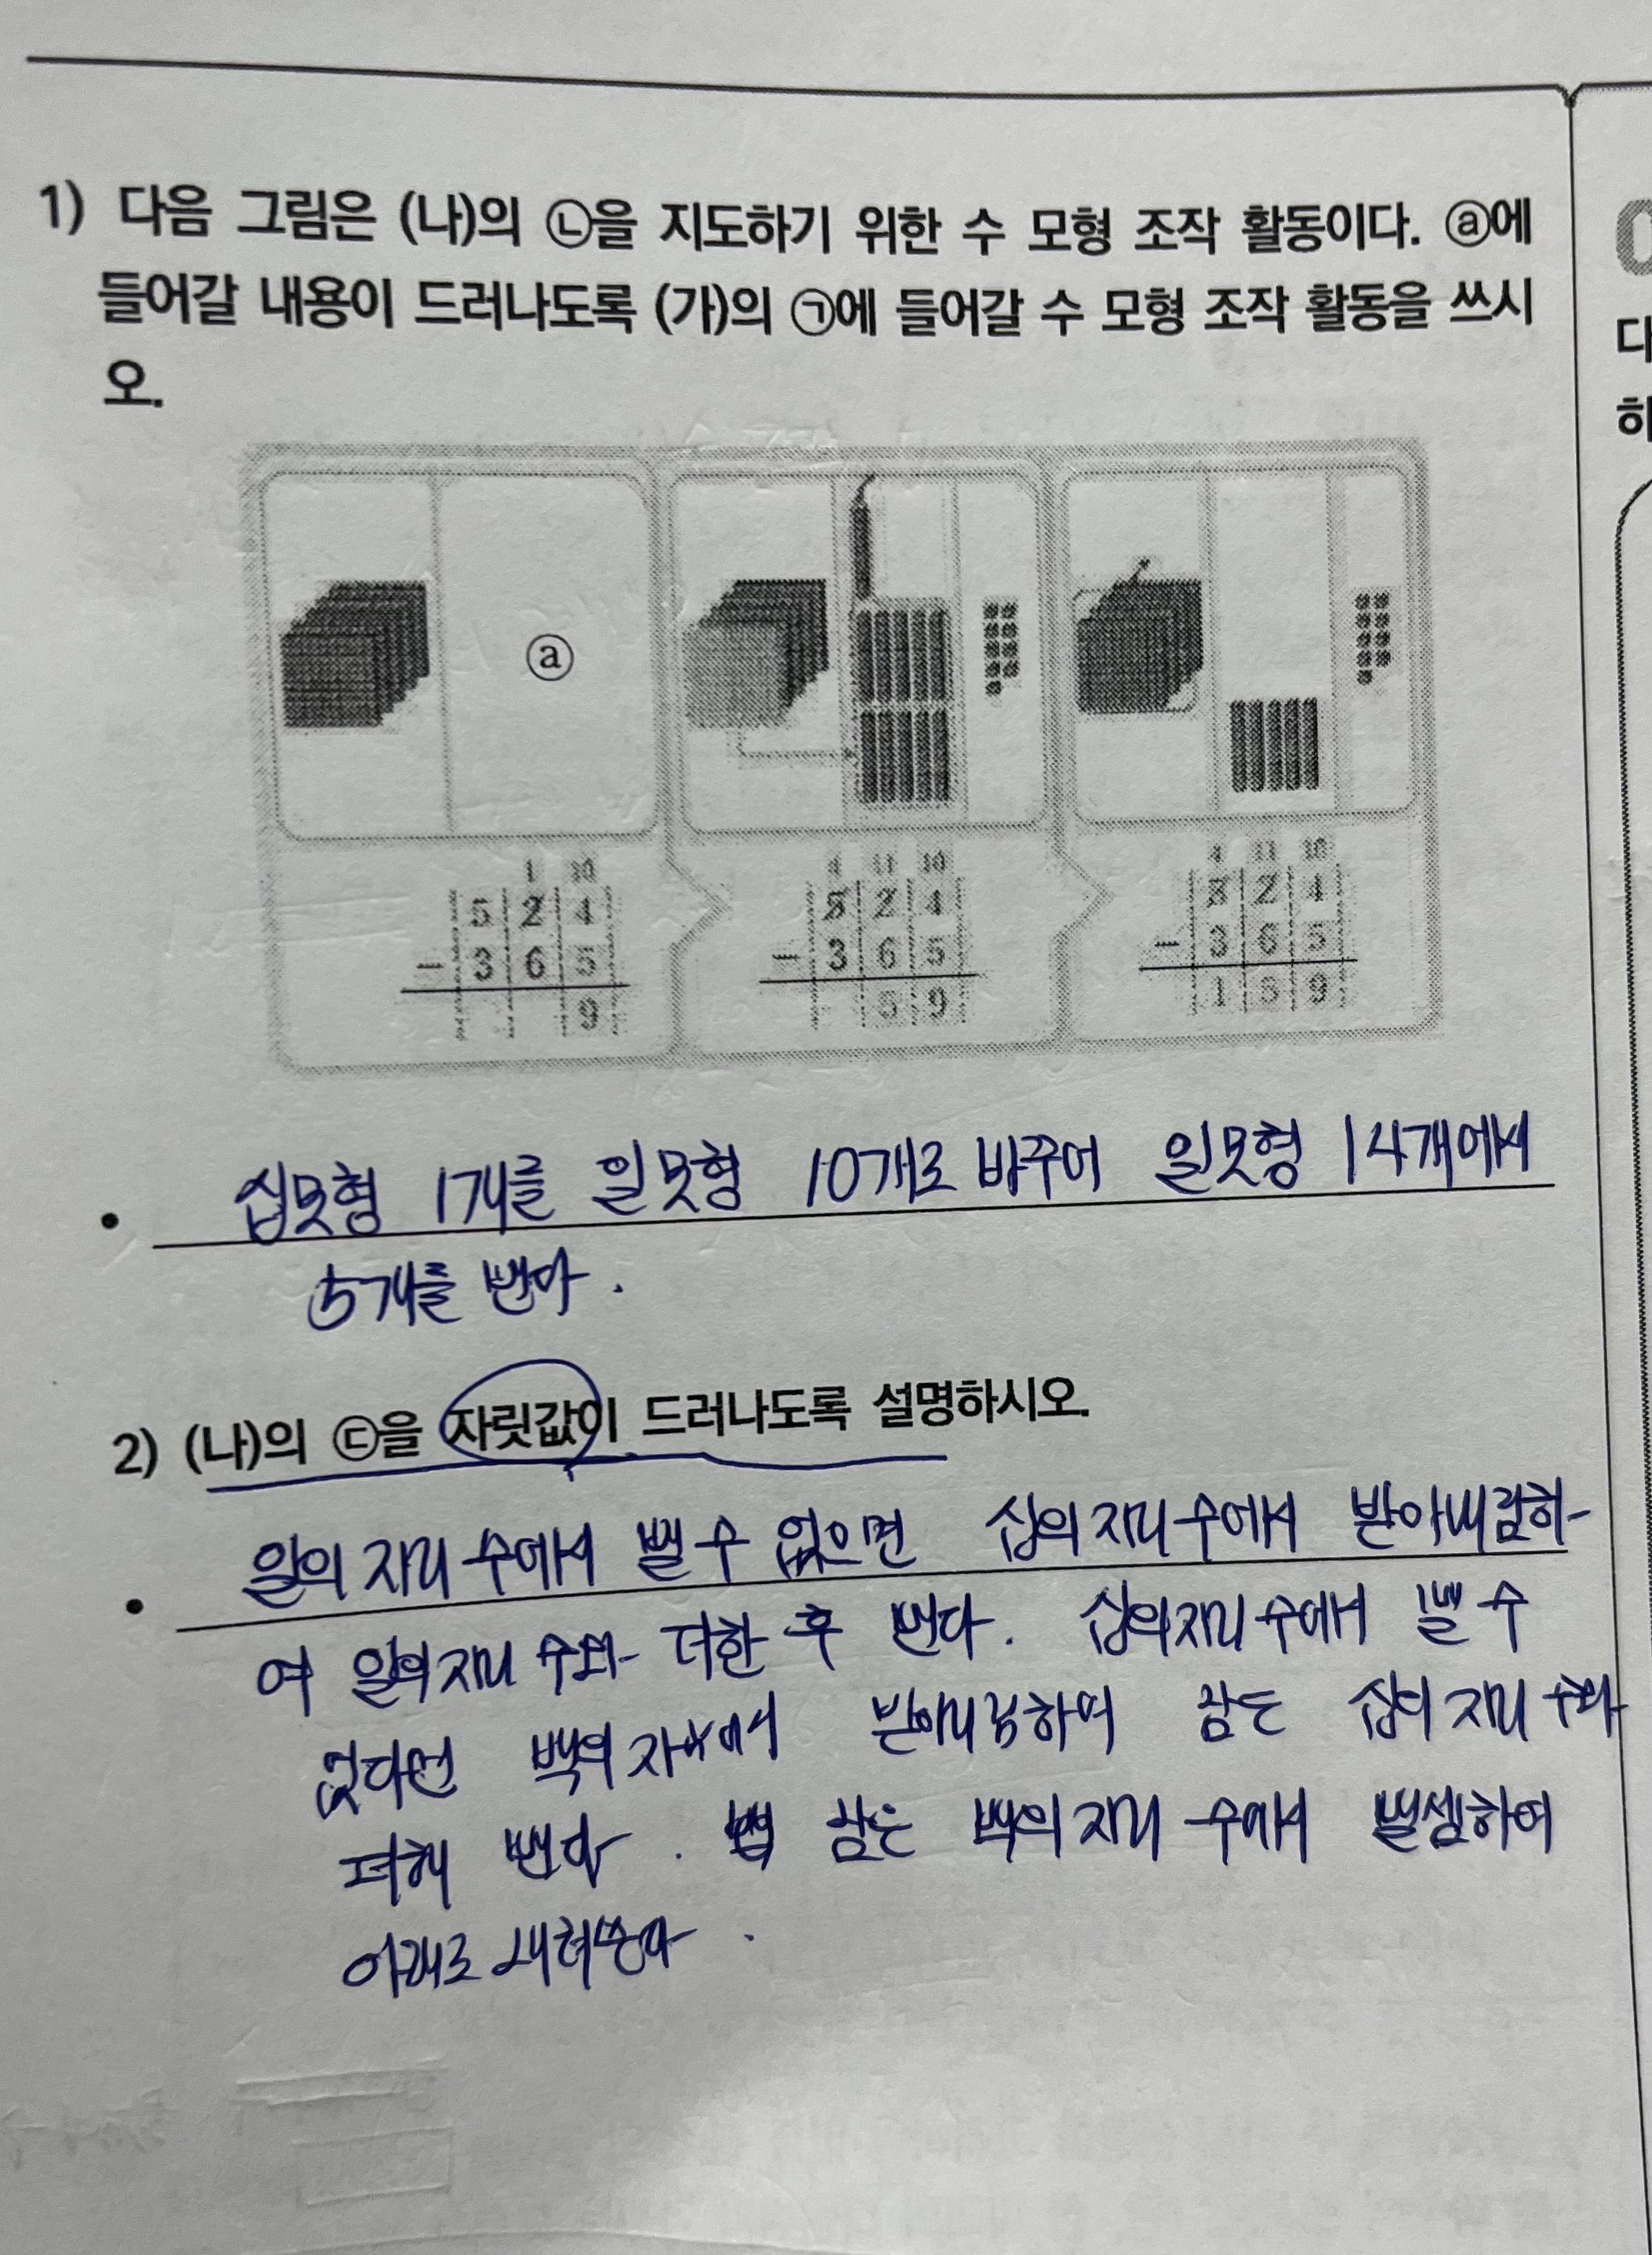 1) 다음 그림은 (나)의 ㉡을 지도하기 위한 수 모형 조작 활동이다. ⓐ에
들어갈 내용이 드러나도록 (가)의 ㉠에 들어갈 수 모형 조작 활동을 쓰시
오.
ⓐ
1 10
5 2 4
- 3 6 5
9
4 11 10
5 2 4
- 3 6 5
5 9
4 11 10
5 2 4
- 3 6 5
1 5 9
• 십모형 1개를 일모형 10개로 바꾸어 일모형 14개에서
5개를 뺀다.
2) (나)의 ㉢을 자릿값이 드러나도록 설명하시오.
• 일의 자리 수에서 뺄 수 없으면 십의 자리 수에서 받아내림하
여 일의 자리 수와 더한 후 뺀다. 십의 자리 수에서 뺄 수
없다면 백의 받아내림하여 십의 자리 수와
더해 뺀다. 남은 백의 자리 수에서 뺄셈하여
아래로 내려쓴다.
다
하